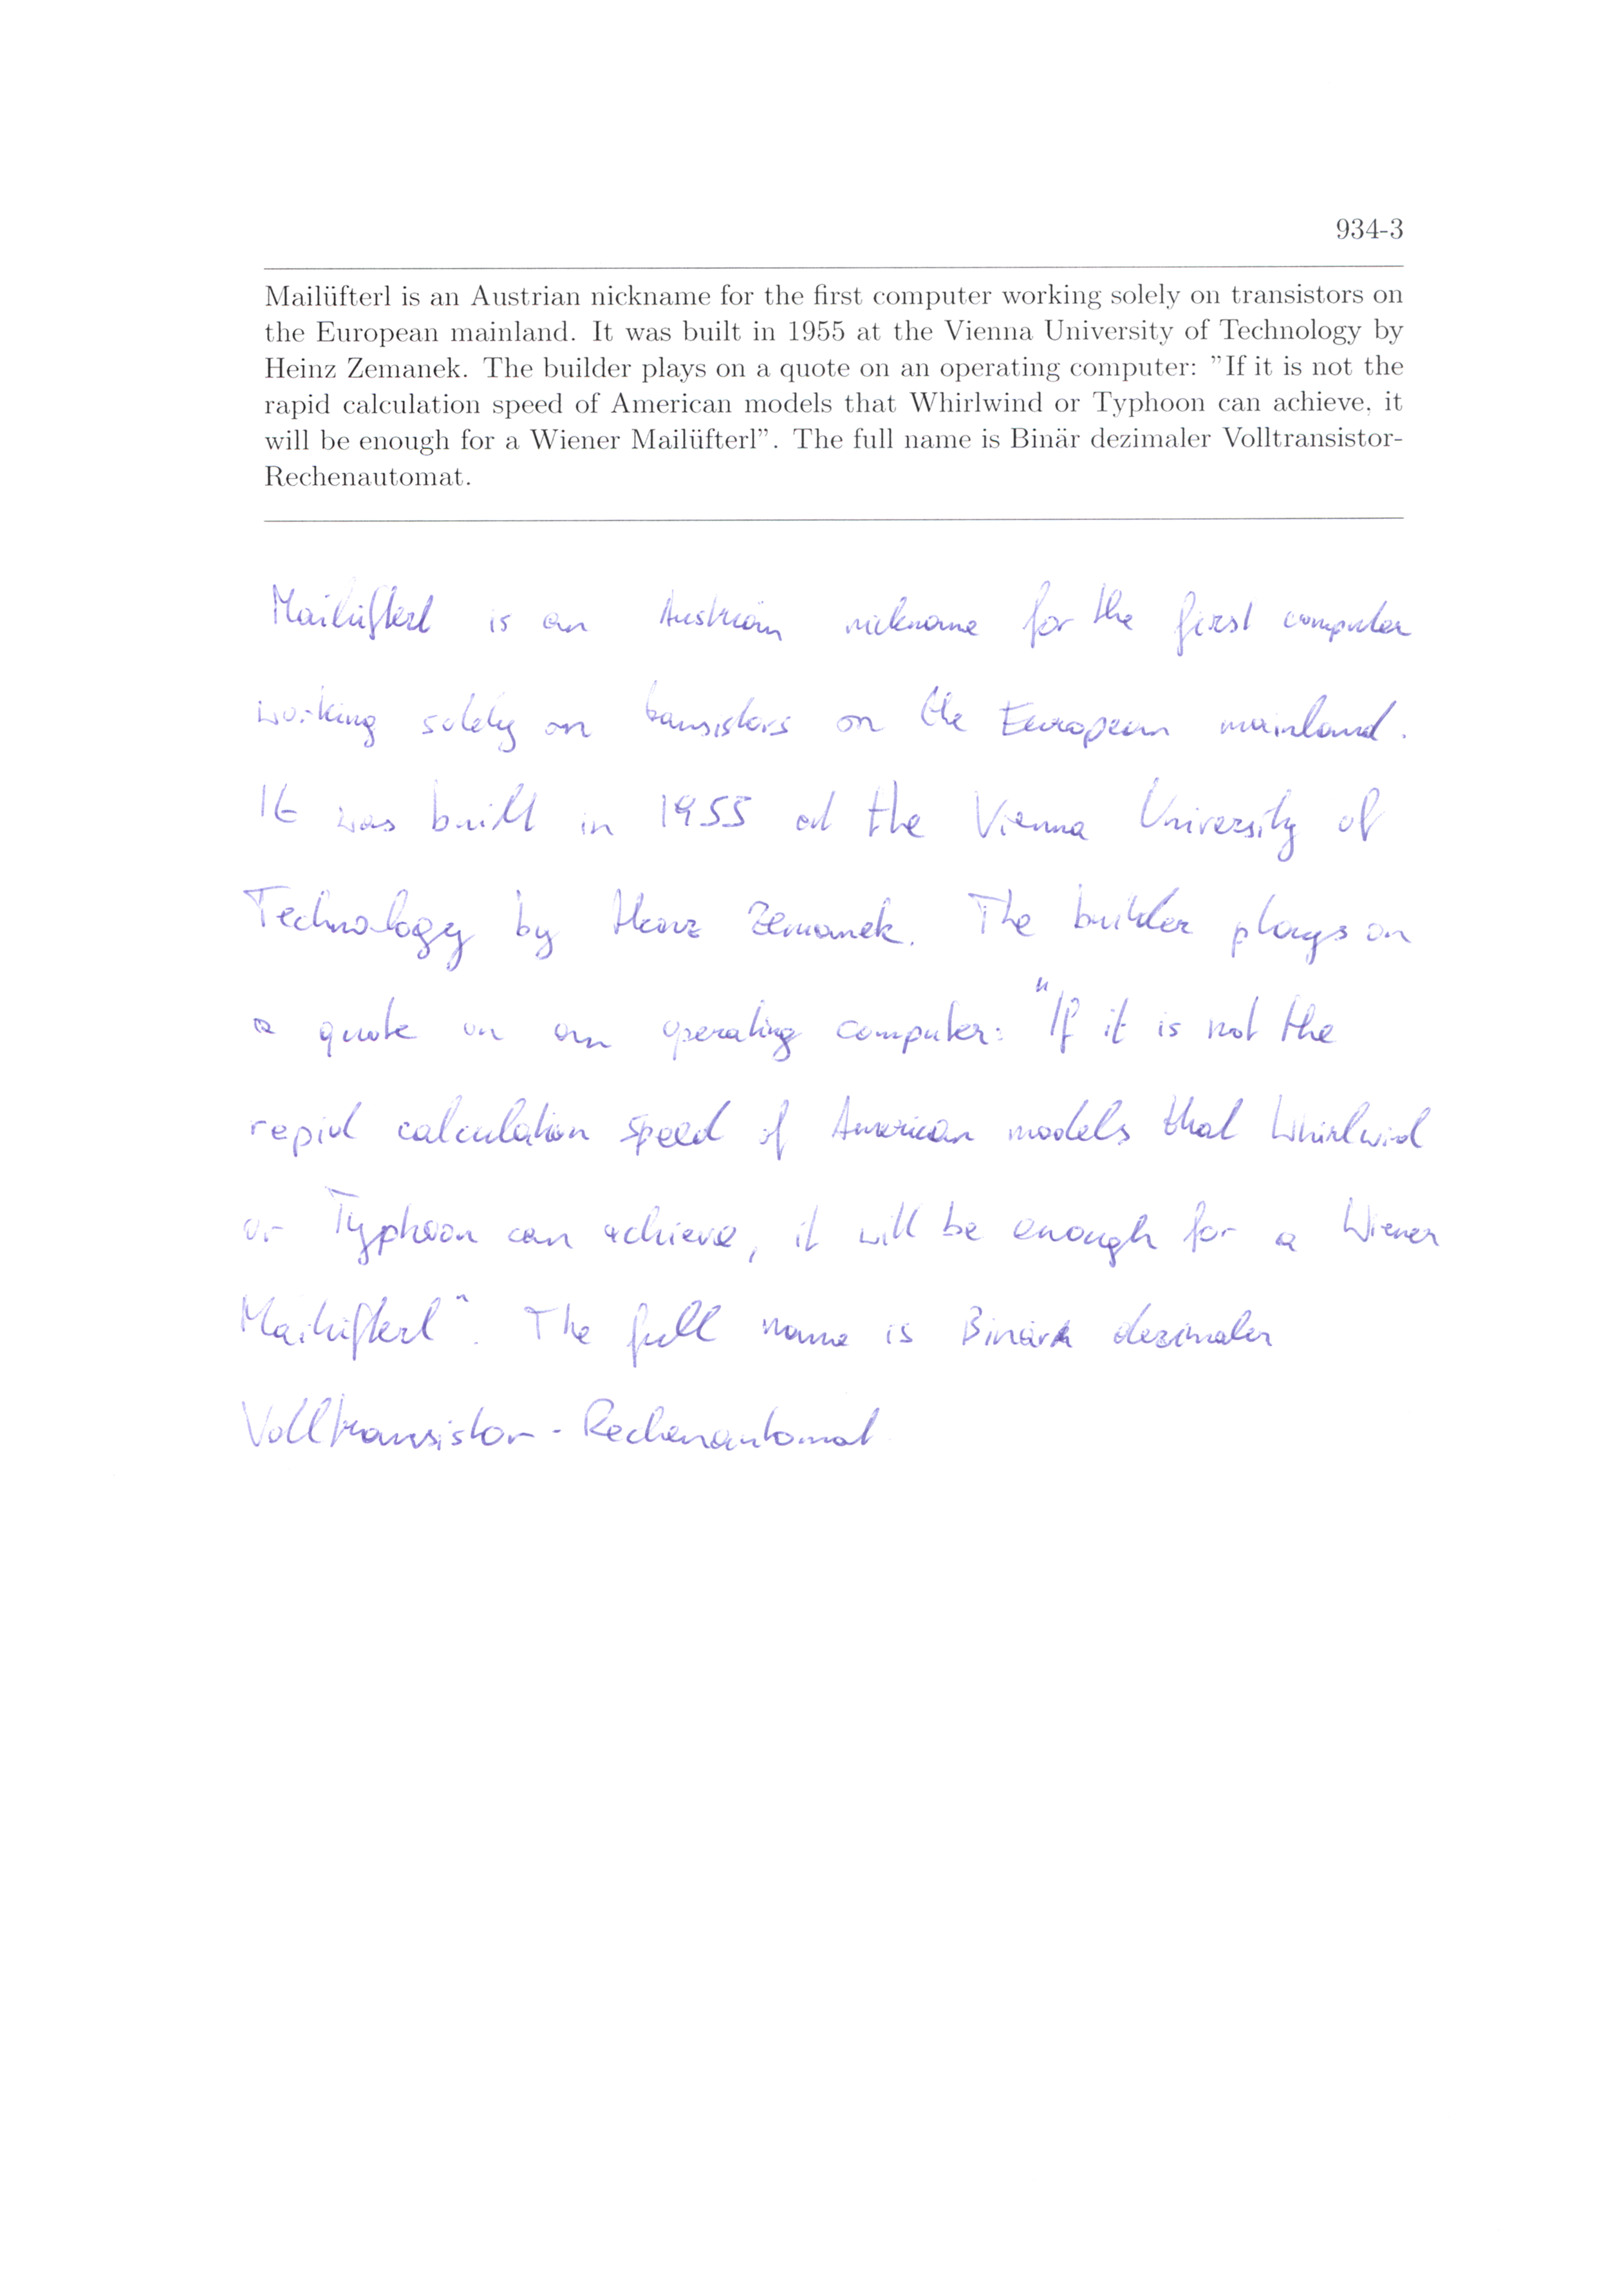 934-3
Mailüfterl is an Austrian nickname for the first computer working solely on transistors on
the European mainland. It was built in 1955 at the Vienna University of Technology by
Heinz Zemanek. The builder plays on a quote on an operating computer: ”If it is not the
rapid calculation speed of American models that Whirlwind or Typhoon can achieve, it
will be enough for a Wiener Mailüfterl”. The full name is Binär dezimaler Volltransistor-
Rechenautomat.
Mailüfterl is an Austrian nickname for the first computer
working solely on transistors on the European mainland.
It was built in 1955 at the Vienna University of
Technology by Heinz Zemanek. The builder plays on
a quote on an operating computer: "If it is not the
repid calculation speed of American models that Whirlwid
or Typhoon can achieve, it will be enough for a Wiener
Mailüfterl". The full name is Binär dezimaler
Volltransistor-Rechenautomat